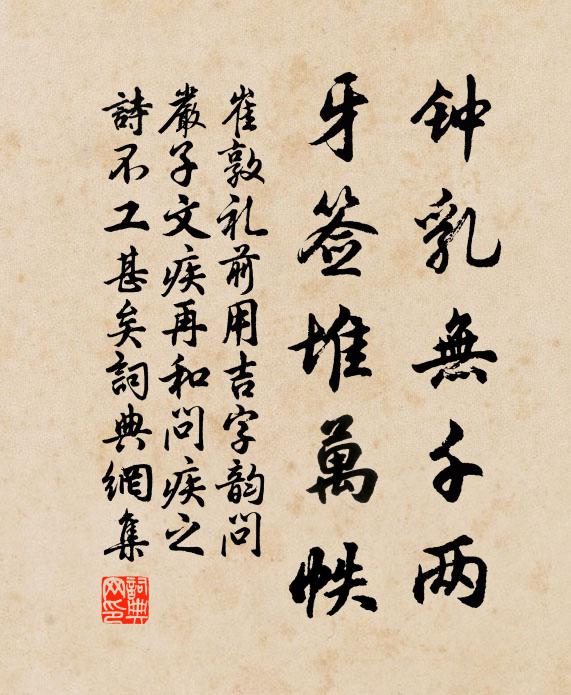 钟乳無千两
牙签堆萬帙
崔敦礼前用吉字韵問
嚴子文疾再和問疾之
詩不工甚矣詞典網集
詞典
网印